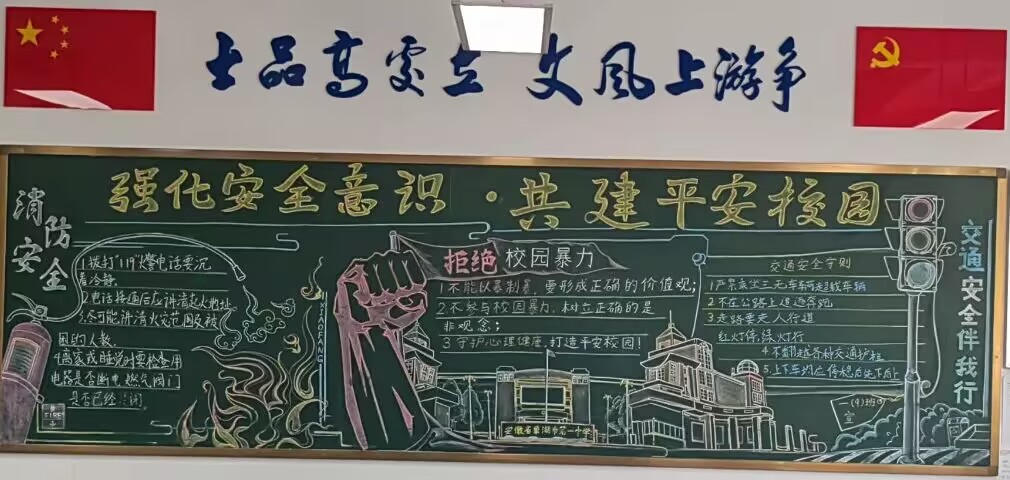 士品高处立 文风上游争
强化安全意识·共建平安校园
消防安全
1.拨打"119"火警电话要沉
着冷静.
2.电话接通后应讲清起火地址
3.尽可能讲清火灾范围及被
困的人数.
4离家或睡觉时要检查用
电器是否断电.燃气阀门
是否已经关闭.
FIRE
XIAOFANG
拒绝校园暴力
1不能以暴制暴,要形成正确的价值观;
2不参与校园暴力.树立正确的是
非观念;
3守护心理健康,打造平安校园!
安徽省巢湖市第一中学
交通安全守则
1严禁乘坐三无车辆超载车辆
2不在公路上追逐
3走路要走人行道
红灯停,绿灯行
4不翻越各种交通护栏
5.上下车均应停稳后先下后上
(9)班
宣
交通安全伴我行